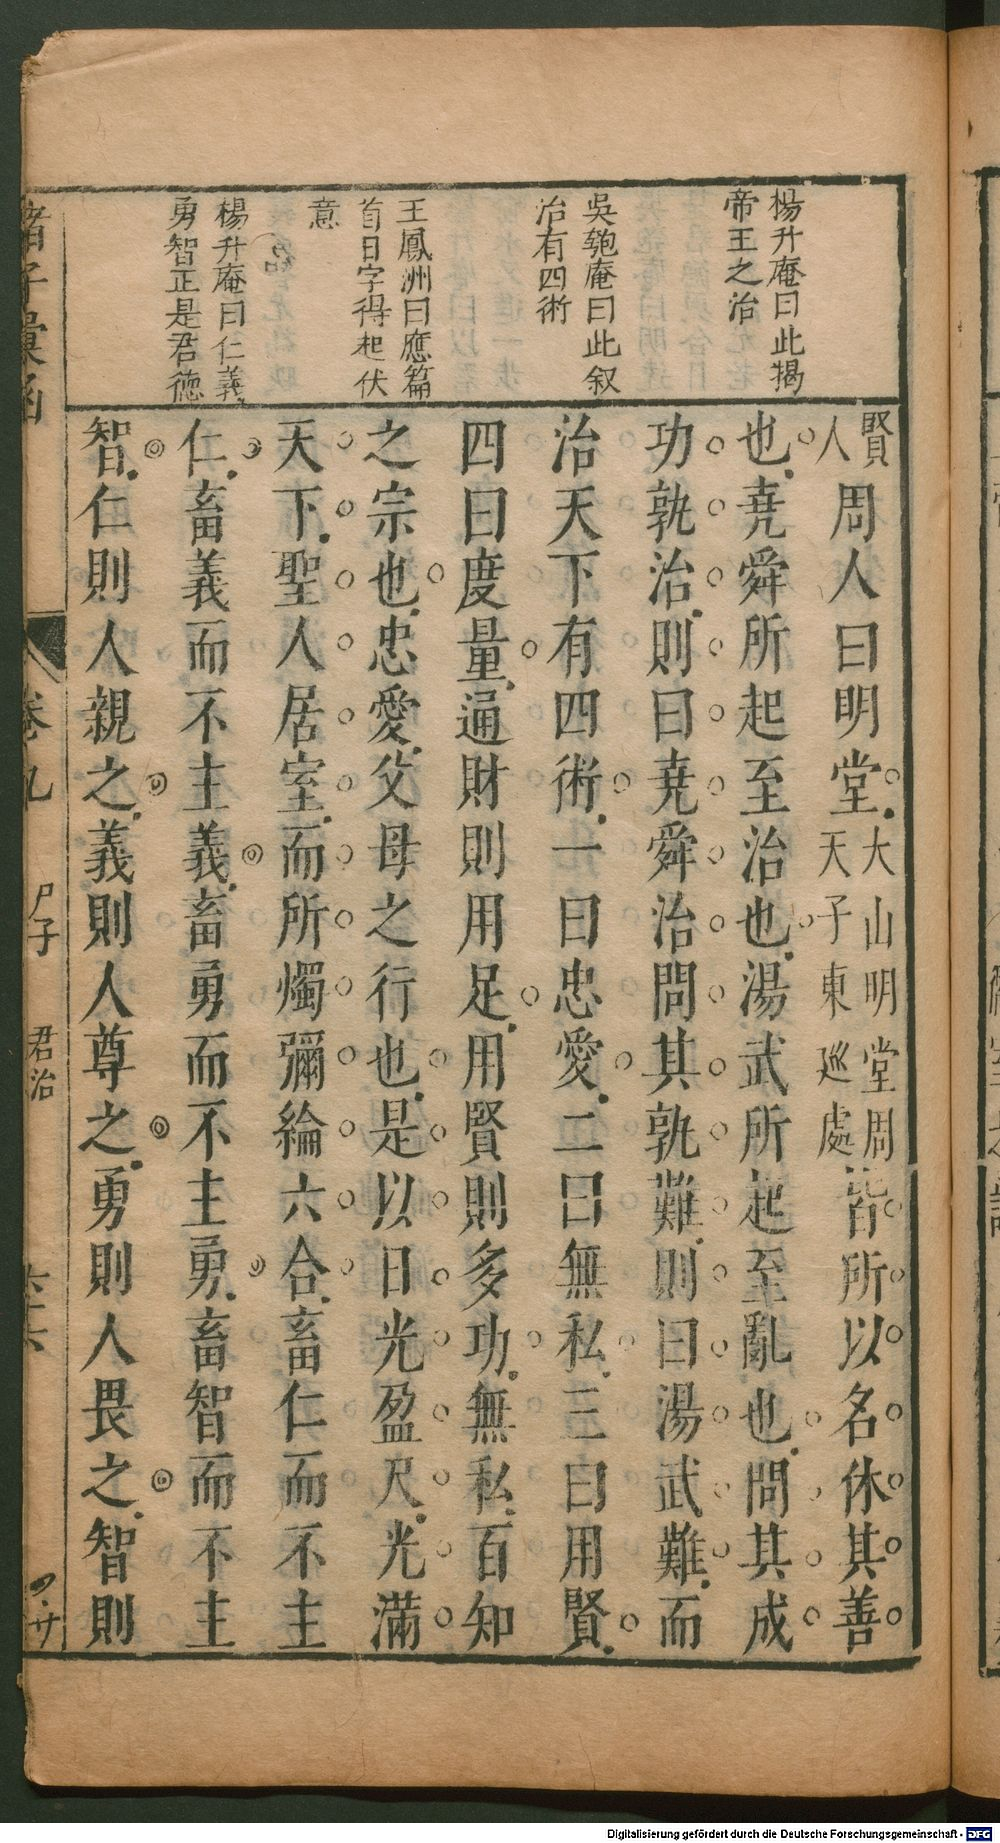 楊升庵曰此揭
帝王之治
吳匏庵曰此叙
治有四術
王鳳洲曰應篇
首日字得起伏
意
楊升庵曰仁義
勇智正是君德
賢人周人曰明堂大山明堂周天子東廵處皆所以名休其善
也堯舜所起至治也湯武所起至亂也問其成
功孰治則曰堯舜治問其孰難則曰湯武難而
治天下有四術一曰忠愛二曰無私三曰用賢
四曰度量通財則用足用賢則多功無私百知
之宗也忠愛父母之行也是以日光盈尺光滿
天下聖人居室而所燭彌綸六合畜仁而不主
仁畜義而不主義畜勇而不主勇畜智而不主
智仁則人親之義則人尊之勇則人畏之智則
諸子彙函
卷九
尸子
君治
六十六
Digitalisierung gefördert durch die Deutsche Forschungsgemeinschaft - DFG